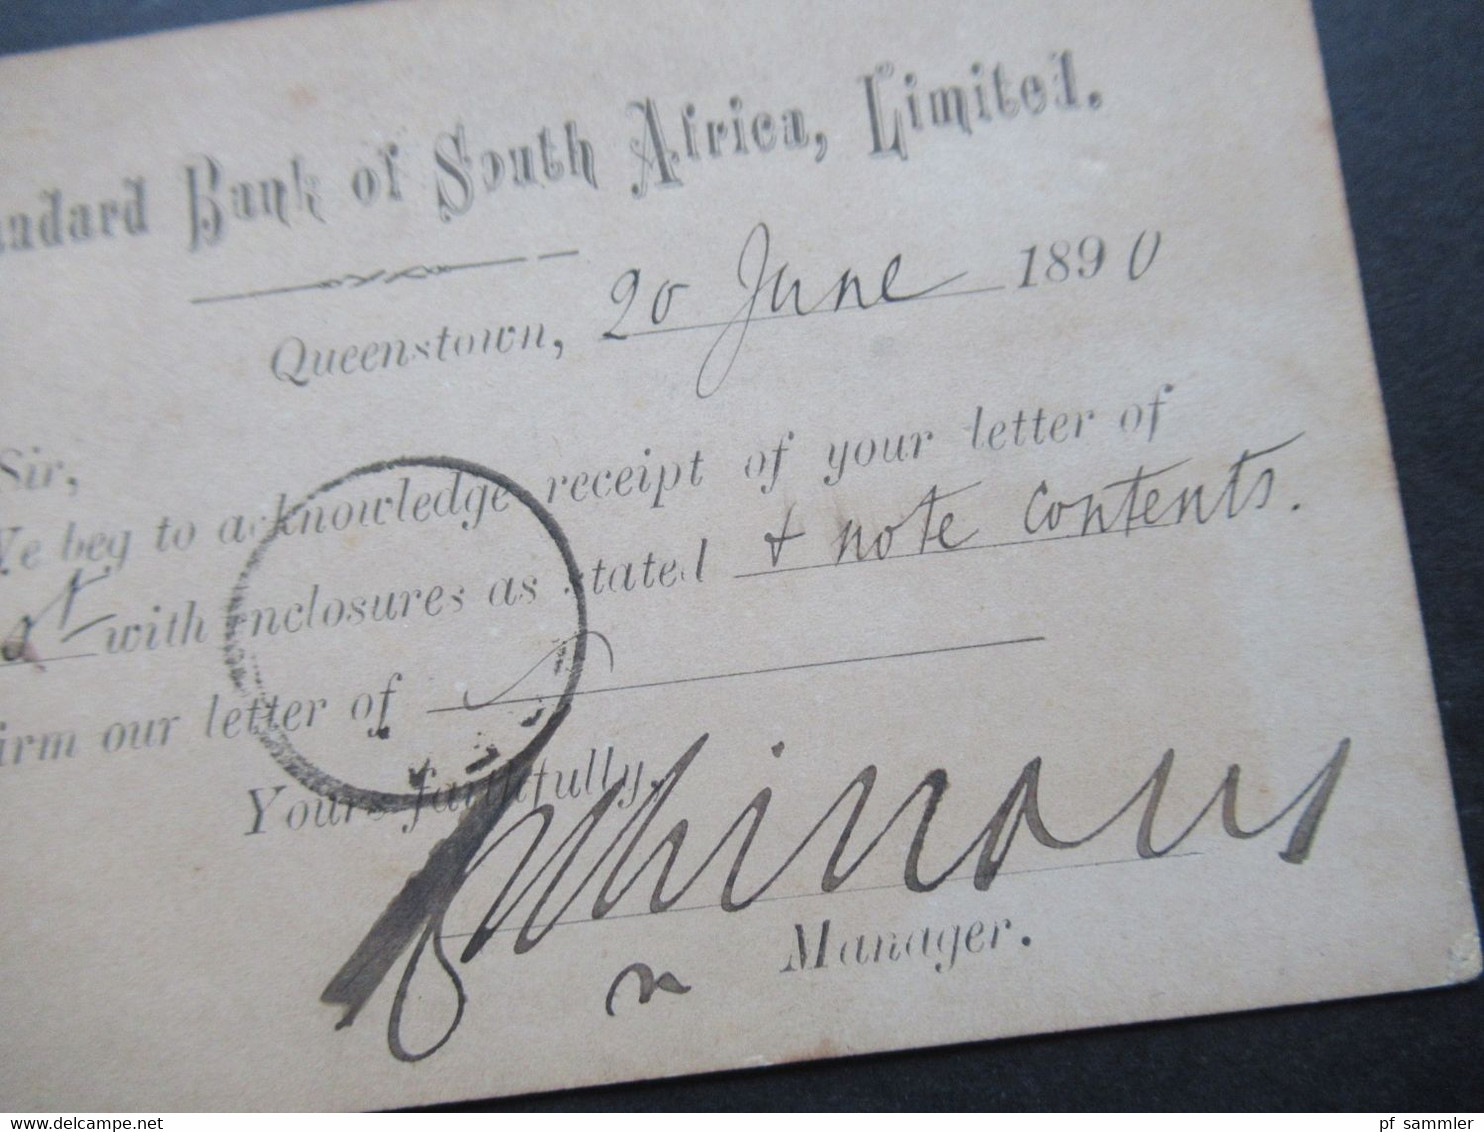 andard Bank of South Africa, Limited.
Queenstown, 20 June 1890
Sir,
We beg to acknowledge receipt of your letter of
with enclosures as stated & note contents.
irm our letter of
Yours faithfully,
Manager.
pf_sammler